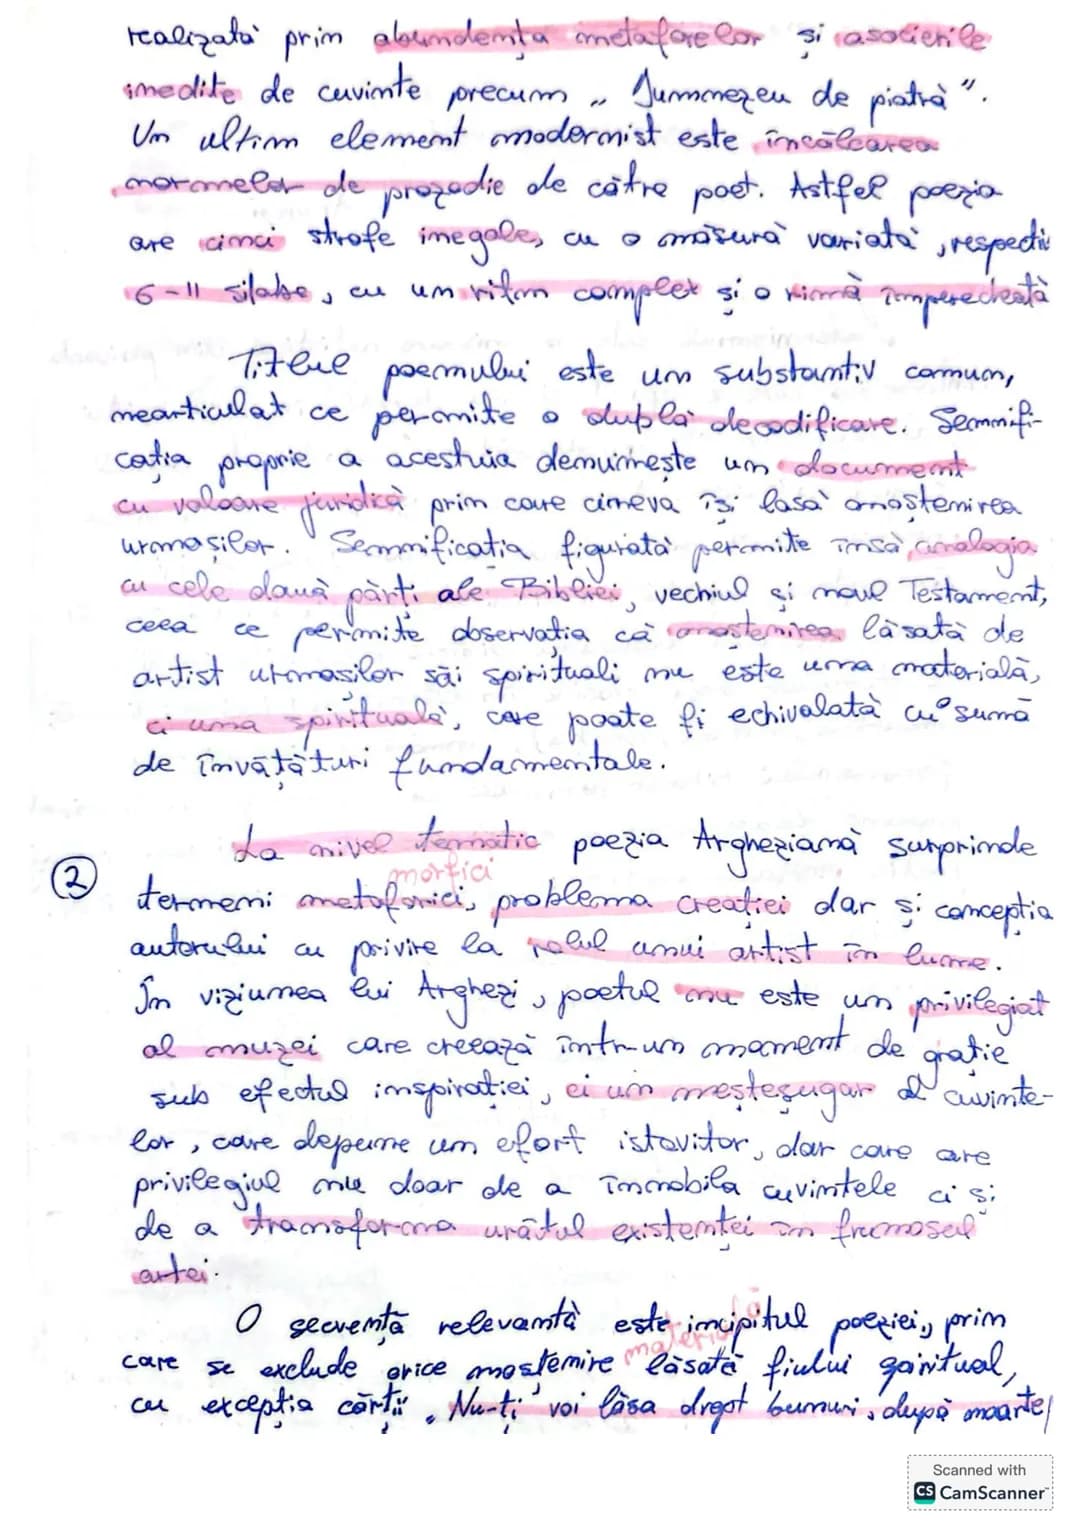 realizată prin abundența metaforelor și asocierile
inedite de cuvinte precum „Dumnezeu de piatră”.
Un ultim element modernist este încălcarea
normelor de prozodie de către poet. Astfel poezia
are cinci strofe inegale, cu o măsură variată, respectiv
6-11 silabe, cu un ritm complex și o rimă împerecheată
Titlul poemului este un substantiv comun,
nearticulat ce permite o dublă decodificare. Semnifi-
cația proprie a acestuia denumește un document
cu valoare juridică prin care cineva își lasă moștenirea
urmașilor. Semnificația figurată permite însă analogia
cu cele două părți ale Bibliei, vechiul și noul Testament,
ceea ce permite observația că moștenirea lăsată de
artist urmașilor săi spirituali nu este una materială,
ci una spirituală, care poate fi echivalată cu o sumă
de învățături fundamentale.
La nivel tematic poezia Argheziană surprinde
morfici
2 termeni metaforici, problema creației dar și concepția
autorului cu privire la rolul unui artist în lume.
În viziunea lui Arghezi, poetul nu este un privilegiat
al muzei care creează într-un moment de grație
sub efectul inspirației, ci un meșteșugar al cuvinte-
lor, care depune un efort istovitor, dar care are
privilegiul nu doar de a înnobila cuvintele ci și
de a transforma urâtul existenței în frumosul
artei.
O secvență relevantă este incipitul poeziei, prin
materială
care se exclude orice moștenire lăsată fiului spiritual,
cu excepția cărții „Nu-ți voi lăsa drept bunuri, după moarte/
Scanned with
CS CamScanner